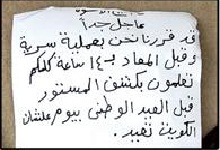 الأسود
عاجل جداً
قد قررنا نحن بعملية سرية
وقبل المعاد بـ ١٤ ساعة كلكم
تعلمون بكشف المستور
قبل العيد الوطني بيوم علشان
الكويت تعيد.